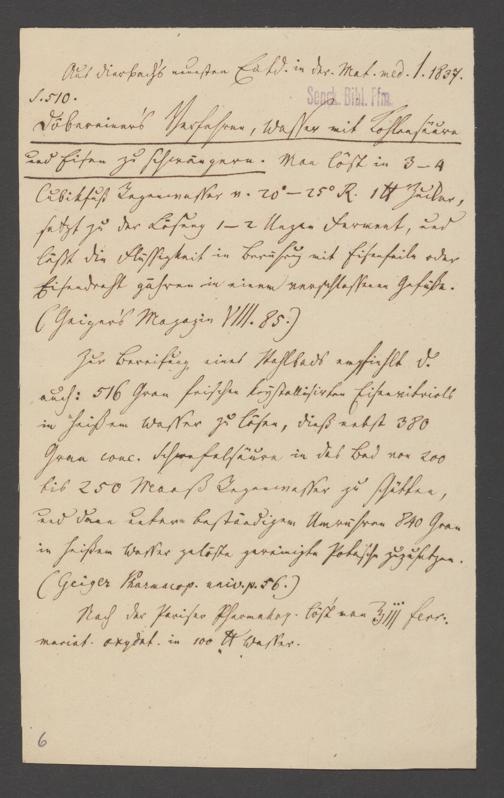 Aus Dierbach's neuesten Entd. in der Mat. med. 1. 1837.
S. 510.
Senck. Bibl. Ffm.
Döbereiner's Verfahren, Wasser mit Kohlensäure
und Eisen zu schwängern. Man löst in 3–4
Cubikfuß Regenwasser v. 20°–25° R. 1 ℔ Zucker,
setzt zu der Lösung 1–2 Unzen Ferment, und
läßt die Flüssigkeit in Berührung mit Eisenfeile oder
Eisendraht gähren in einem verschlossenen Gefäße.
(Geiger's Magazin VIII. 85.)
Zur Bereitung eines Stahlbads empfiehlt D.
auch: 516 Gran frischen krystallisirten Eisenvitriols
in heißem Wasser zu lösen, dieß nebst 380
Gran conc. Schwefelsäure in das Bad von 200
bis 250 Maaß Regenwasser zu schütten,
und dann unter beständigem Umrühren 840 Gran
in heißem Wasser gelöste gereinigte Potasche zuzusetzen.
(Geiger Pharmacop. univ. p. 56.)
Nach der Pariser Pharmakop. löst man ʒiii ferr.
muriat. oxydat. in 100 ℔ Wasser.
6